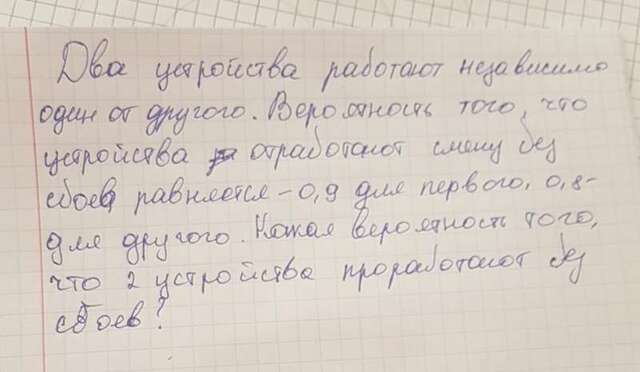 Два устройства работают независимо
один от другого. Вероятность того, что
устройства отработают смену без
сбоев равняется - 0,9 для первого, 0,8 -
для другого. Какая вероятность того,
что 2 устройства проработают без
сбоев?